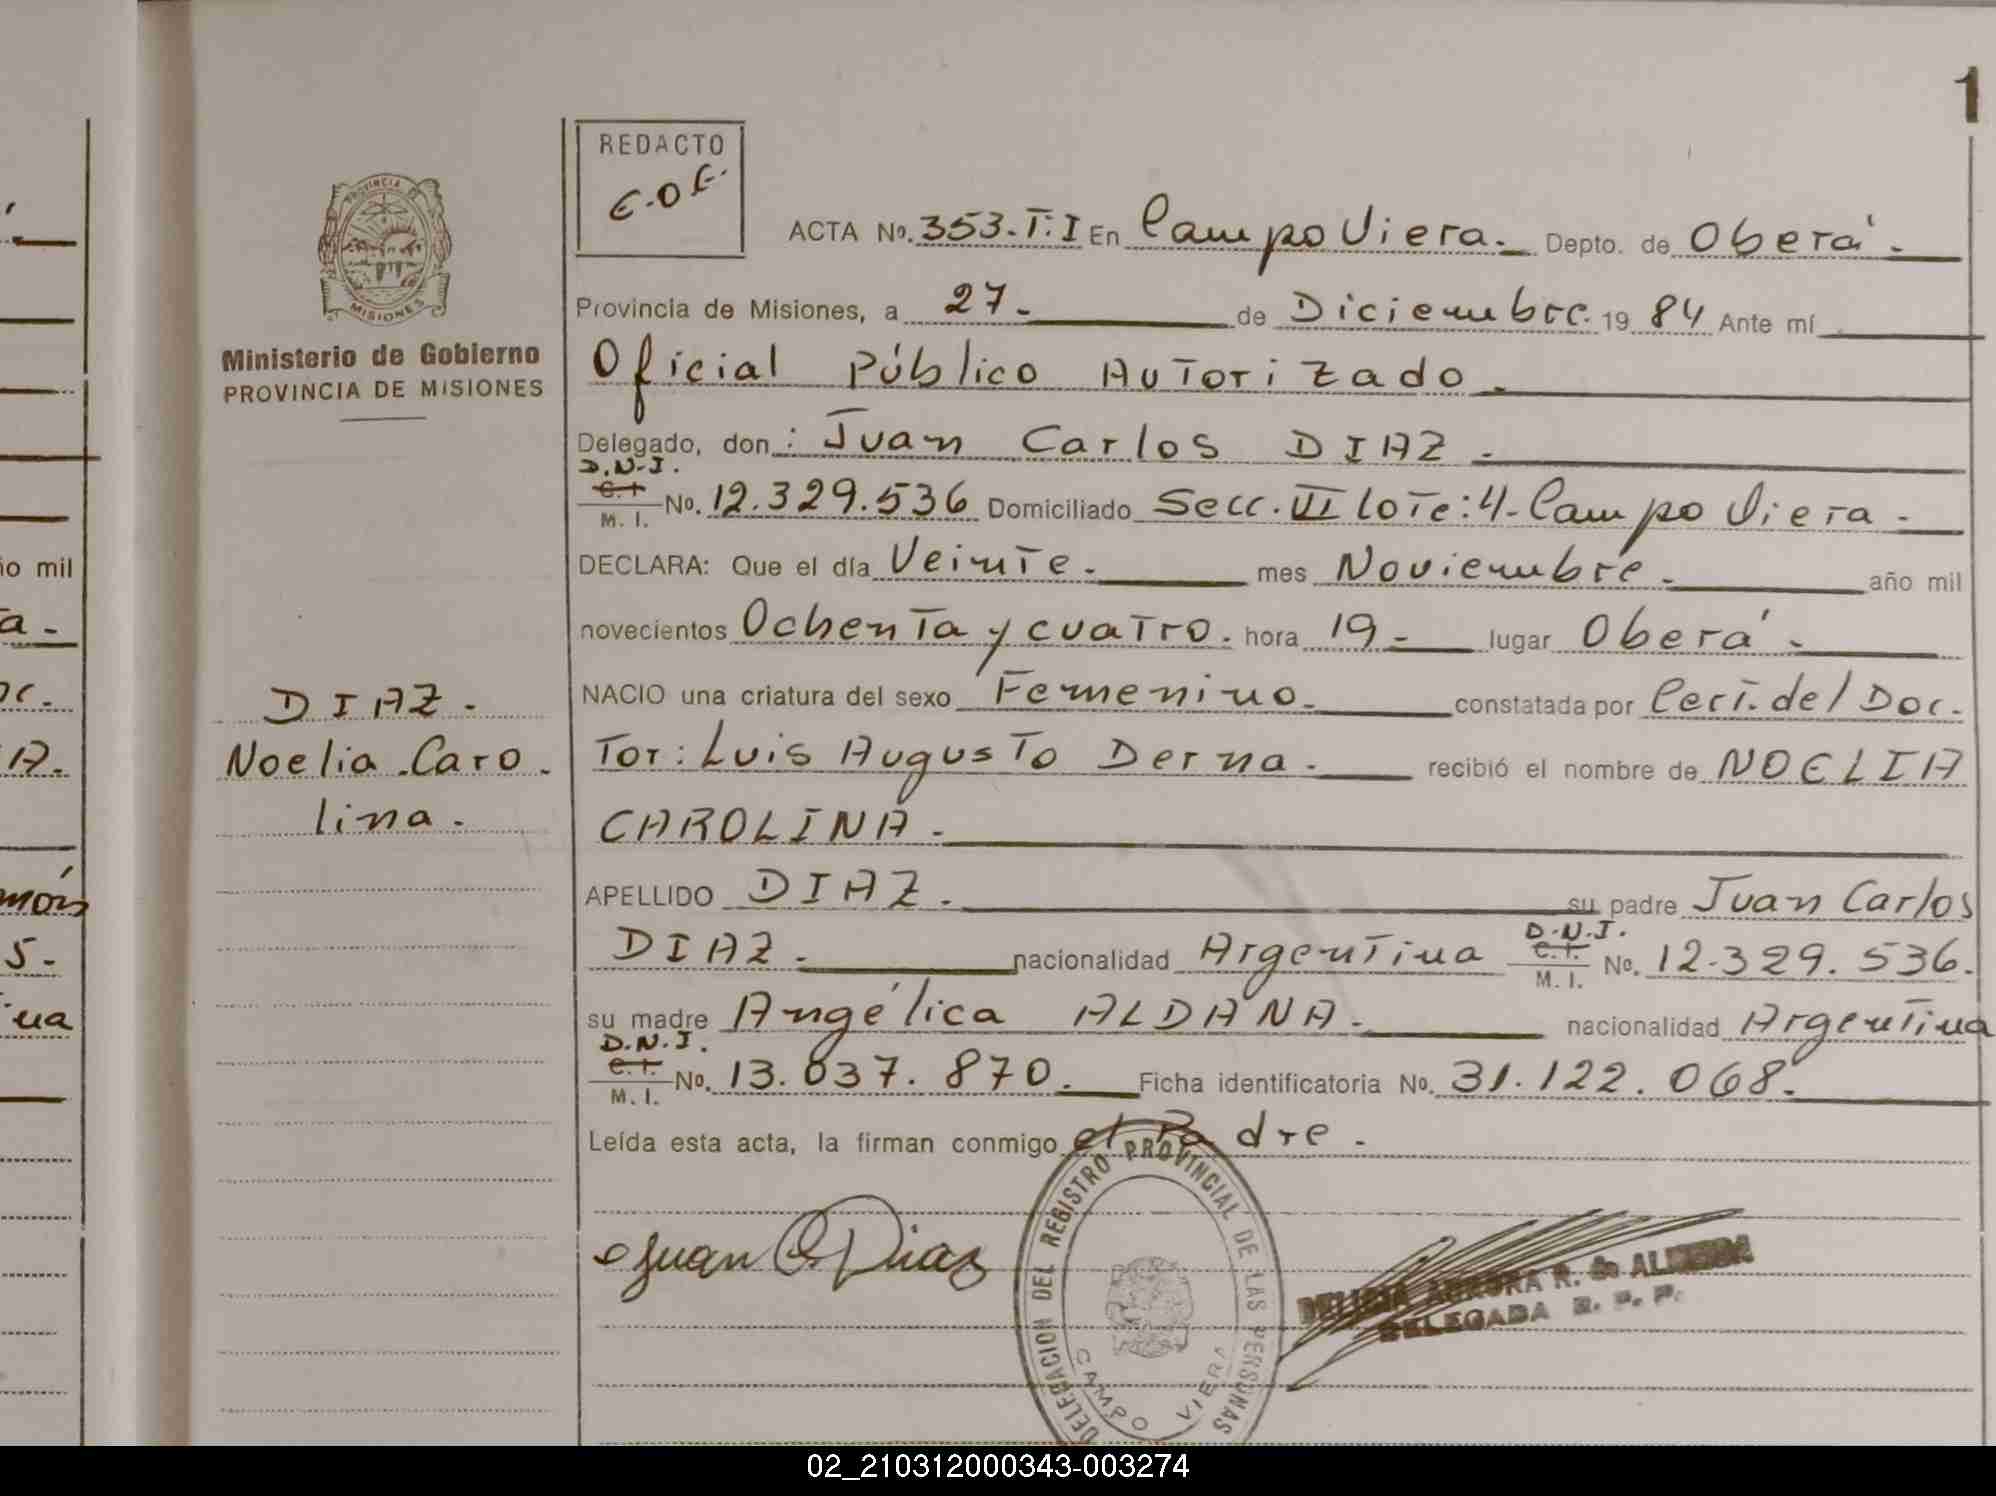 1
REDACTO
E.O.E.
PROVINCIA DE
MISIONES
Ministerio de Gobierno
PROVINCIA DE MISIONES
DIAZ.
Noelia Caro
lina.
ACTA Nº. 353. T: I En Campo Viera. Depto. de Oberá.
Provincia de Misiones, a 27. de Diciembre. 19 84 Ante mí
Oficial Público Autorizado.
Delegado, don: Juan Carlos DIAZ.
D.N.I.
C. I.
M. I. Nº. 12.329.536 Domiciliado Secc. VI Lote: 4. Campo Viera.
DECLARA: Que el día Veinte. mes Noviembre. año mil
novecientos Ochenta y cuatro. hora 19. lugar Oberá.
NACIO una criatura del sexo Femenino. constatada por Cert. del Doc.
tor: Luis Augusto Derna. recibió el nombre de NOELIA
CAROLINA.
APELLIDO DIAZ. su padre Juan Carlos
DIAZ. nacionalidad Argentina D.N.I. C. I. M. I. Nº. 12.329.536.
su madre Angélica ALDANA. nacionalidad Argentina
D.N.I.
C. I.
M. I. Nº. 13.037.870. Ficha identificatoria Nº. 31.122.068.
Leída esta acta, la firman conmigo el Padre.
Juan C Diaz
DELEGACION DEL REGISTRO PROVINCIAL DE LAS PERSONAS
CAMPO VIERA
DELICIA AURORA R. de ALMEIDA
DELEGADA R. P. P.
ño mil
a.
A.
món
5.
ua
02_210312000343-003274